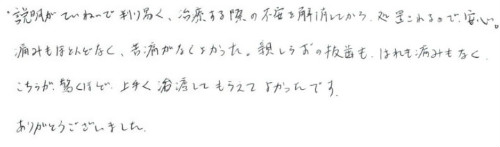 ・説明がていねいで判り易く、治療する際の不安を解消してから、処置されるので、安心。
痛みもほとんどなく、苦痛がなくよかった。親しらずの抜歯も、はれも痛みもなく、
こちらが驚くほど、上手く治療してもらえてよかったです。
ありがとうございました。